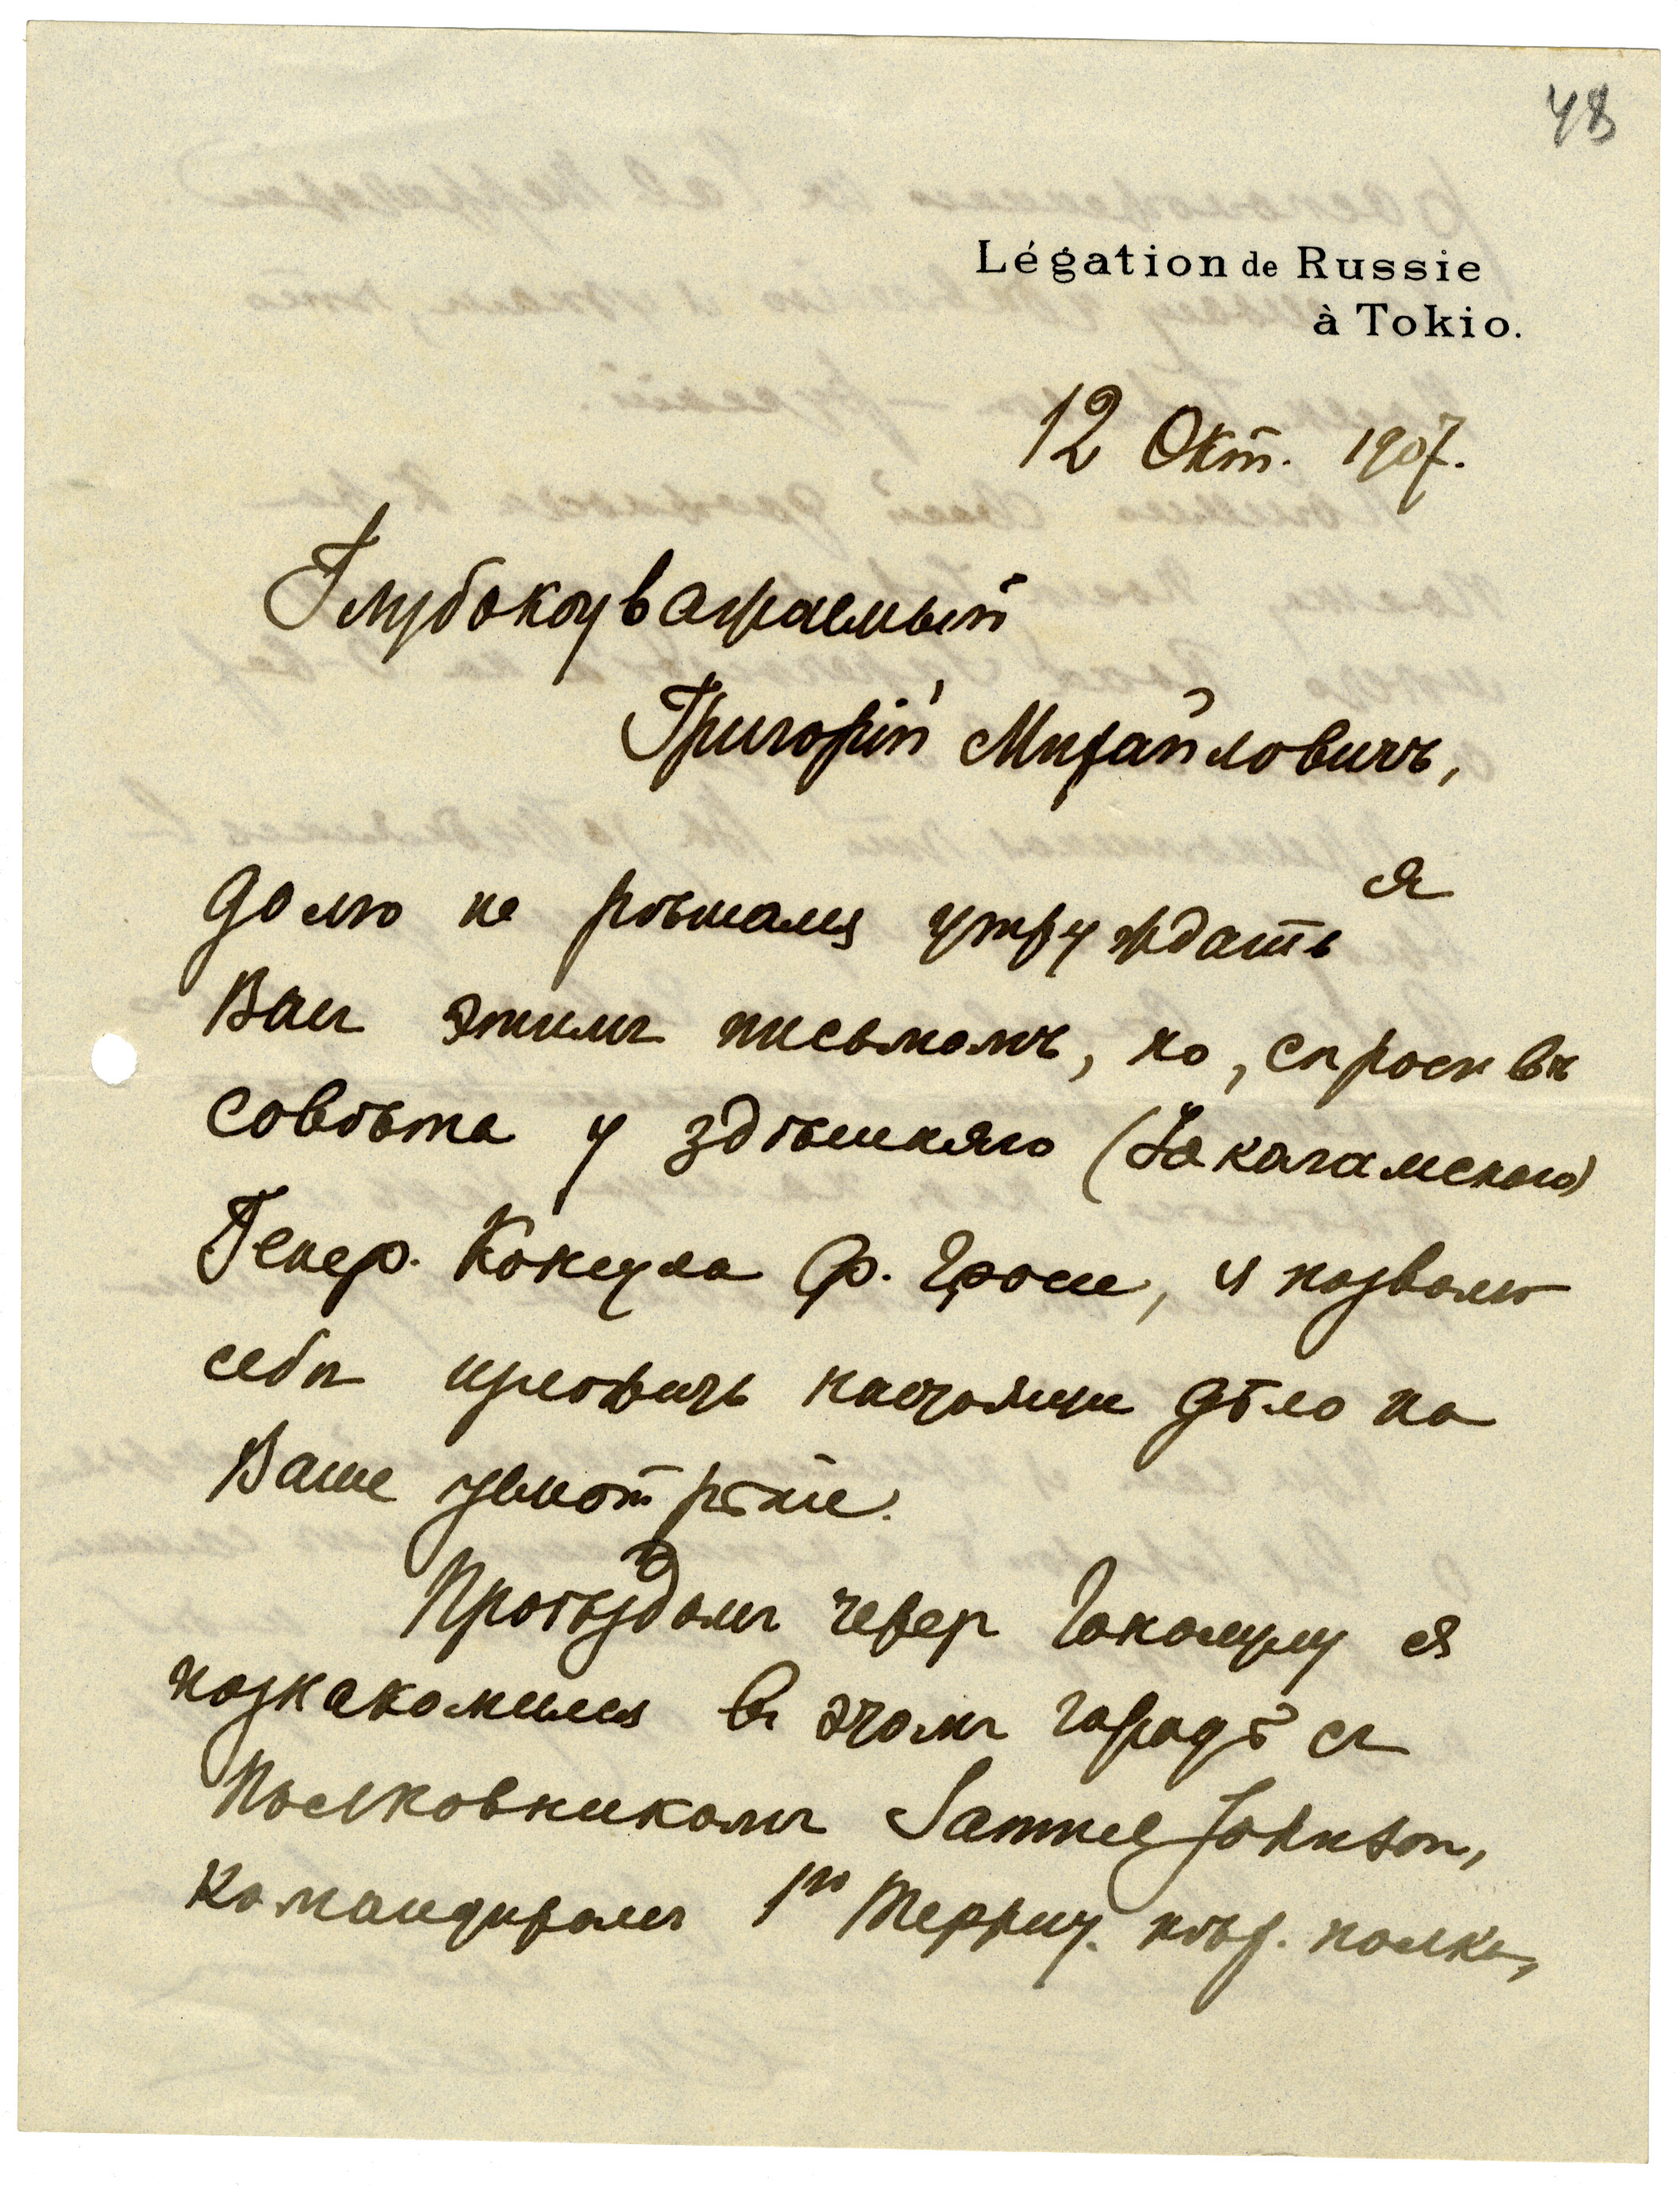 48
Légation de Russie
à Tokio.
12 Окт. 1907.
Глубокоуважаемый
Григорій Михайловичъ,
я
долго не рѣшался утруждать
Васъ этимъ письмомъ, но, спросивъ
совѣта у здѣшняго (Іокагамскаго)
Генер. Консула Ф. Гроссе, я позволю
себѣ настоящее дѣло на
Ваше усмотрѣніе.
Проѣздомъ через Гонолулу я
познакомился въ этомъ городѣ съ
Полковникомъ Samuel Johnson,
Командиромъ 1го Террит. пѣх. полка,